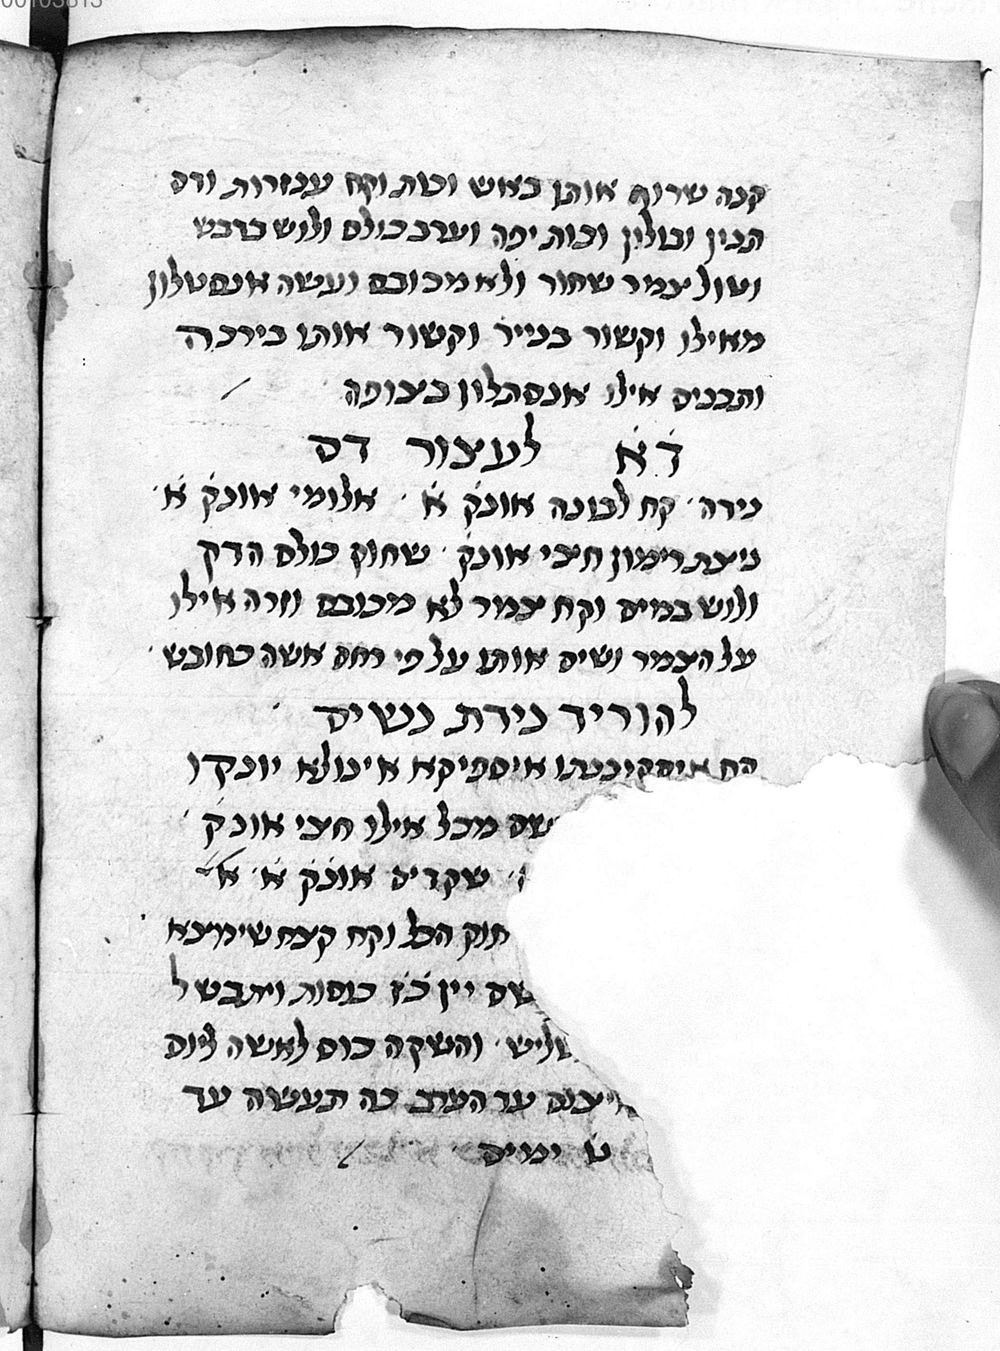 קנה שרוף אותן באש וכות וקח ענזרות ודם
תנין ובולין וכות יפה וערב כולם ולוש בדבש
וטול צמר שחור ולא מכובס ועשה אנסטלון
מאילו וקשור בנייר וקשור אותו בירכה
ותכניס אילו אנסתלון בצופה
ד̇א̇ לעצור דם
נידה׳ קח לבונה אונק̇ א̇ ׳ אלומי אונק̇ א̇ ׳
ניצת רימון חצי אונק̇ ׳ שחוק כולם הדק
ולוש במים וקח צמר לא מכובס וזרה אילו
על הצמר ושים אותו על פי רחם אשה כחובש ׳
להוריד נידת נשים ׳
קח איספיקא אינולא יונקו
מכל אילו חצי אונק̇ ׳
שקדים אונק̇ א̇ ׳ א̇
חוק הכל וקח קצח שימצא
שם יין כ̇ז̇ כוסות ויתבשל
שליש ׳ והשקה כוס לאשה ליום
עד הערב כה תעשה עד
ט̇ ימים ׳